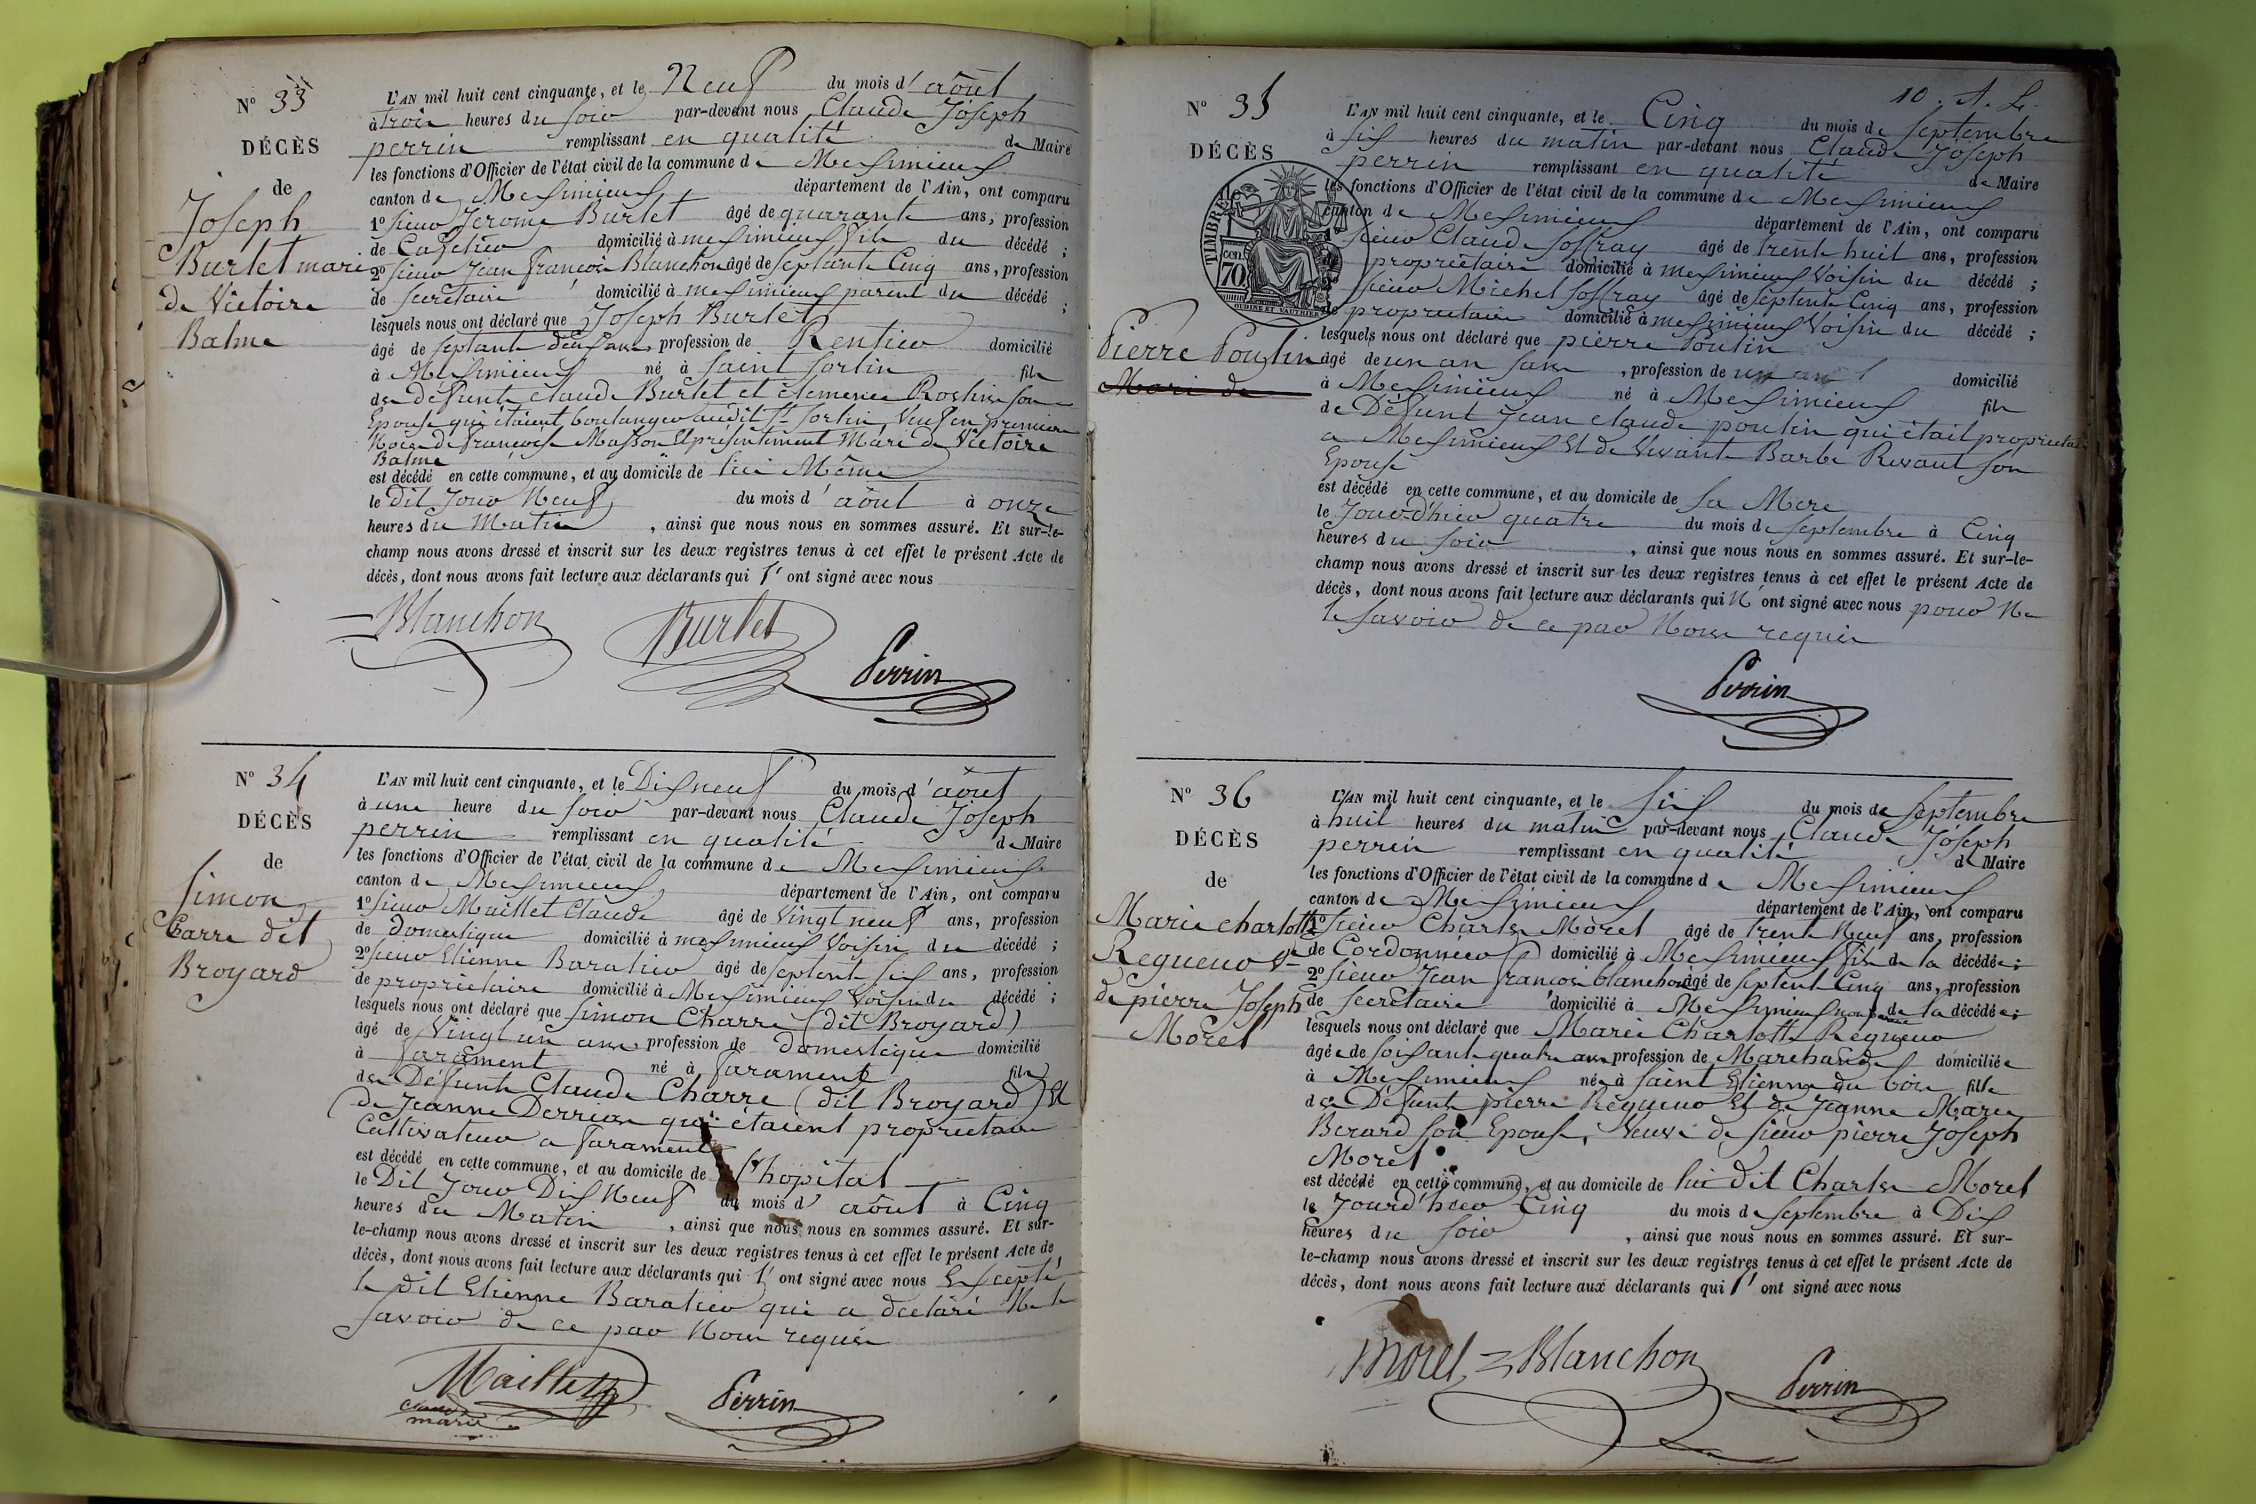 N° 33
DÉCÈS
de
Joseph
Burlet mari
de Victoire
Balme
L'AN mil huit cent cinquante, et le Neuf du mois d'août
à trois heures du soir par-devant nous Claude Joseph
perrin remplissant en qualité de Maire
les fonctions d'Officier de l'état civil de la commune de Meximieux
canton de Meximieux département de l'Ain, ont comparu
1° sieur Jerome Burlet âgé de quarante ans, profession
de Cafetier domicilié à meximieux fils du décédé ;
2° sieur Jean françois Blanchon âgé de septante Cinq ans, profession
de secretaire domicilié à meximieux parent du décédé ;
lesquels nous ont déclaré que Joseph Burlet
âgé de septante deux ans profession de Rentier domicilié
à Meximieux né à saint sorlin fils
des défunts claude Burlet et clemence son
Epouse qui étaient boulanger audit St sorlin Veuf en premiere
Noce de françoise Masson Et presentement Mari de Victoire
Balme
est décédé en cette commune, et au domicile de lui Même
le Dit Jour Neuf du mois d'août à onze
heures du Matin, ainsi que nous nous en sommes assuré. Et sur-le-
champ nous avons dressé et inscrit sur les deux registres tenus à cet effet le présent Acte de
décès, dont nous avons fait lecture aux déclarants qui l'ont signé avec nous
Blanchon Burlet Perrin
N° 34
DÉCÈS
de
Simon
Carre dit
Broyard
L'AN mil huit cent cinquante, et le Dix neuf du mois d'août
à une heure du soir par-devant nous Claude Joseph
perrin remplissant en qualité de Maire
les fonctions d'Officier de l'état civil de la commune de Meximieux
canton de Meximieux département de l'Ain, ont comparu
1° sieur Maillet Claude âgé de Vingt neuf ans, profession
de domestique domicilié à meximieux Voisin du décédé ;
2° sieur Etienne Baratier âgé de septent six ans, profession
de propriétaire domicilié à Meximieux Voisin du décédé ;
lesquels nous ont déclaré que simon Charre (dit Broyard)
âgé de Vingt un ans profession de domestique domicilié
à faramens né à faramens fils
des Défunts Claude Charre (dit Broyard) Et
de Jeanne Derrias qui étaient propriétaire
Cultivateur a faramens
est décédé en cette commune, et au domicile de l'hôpital
le Dit Jour Dix Neuf du mois d'août à Cinq
heures du Matin, ainsi que nous nous en sommes assuré. Et sur-
le-champ nous avons dressé et inscrit sur les deux registres tenus à cet effet le présent Acte de
décès, dont nous avons fait lecture aux déclarants qui l'ont signé avec nous Excepté
le dit Etienne Baratier qui a declaré Ne le
savoir de ce par Nous requis
Maillet claude marie Perrin
10. A. L.
N° 35
DÉCÈS
TIMBRE
70
Pierre Poulin
Mari de
L'AN mil huit cent cinquante, et le Cinq du mois de septembre
à six heures du matin par-devant nous Claude Joseph
perrin remplissant en qualité de Maire
les fonctions d'Officier de l'état civil de la commune de Meximieux
canton de Meximieux département de l'Ain, ont comparu
sieur Claude soffray âgé de trente huit ans, profession
propriétaire domicilié à meximieux Voisin du décédé ;
sieur Michel soffray âgé de septente Cinq ans, profession
de propriétaire domicilié à meximieux Voisin du décédé ;
lesquels nous ont déclaré que pierre Poulin
âgé de un an sans, profession de domicilié
à Meximieux né à Meximieux fils
de Défunt Jean claude poulin qui était propriétaire
a Meximieux Et de Vivante Barbe Revaut son
Epouse
est décédé en cette commune, et au domicile de sa Mere
le Jour d'hier quatre du mois de septembre à Cinq
heures du soir, ainsi que nous nous en sommes assuré. Et sur-le-
champ nous avons dressé et inscrit sur les deux registres tenus à cet effet le présent Acte de
décès, dont nous avons fait lecture aux déclarants qui N'ont signé avec nous pour Ne
le savoir de ce par Nous requis
Perrin
N° 36
DÉCÈS
de
Marie Charlotte
Regueno Ve
de pierre Joseph
Morel
L'AN mil huit cent cinquante, et le six du mois de septembre
à huit heures du matin par-devant nous Claude Joseph
perrin remplissant en qualité de Maire
les fonctions d'Officier de l'état civil de la commune de Meximieux
canton de Meximieux département de l'Ain, ont comparu
1° sieur Charles Morel âgé de trente Neuf ans, profession
de Cordonnier domicilié à Meximieux fils de la décédée ;
2° sieur Jean françois blanchon âgé de septent Cinq ans, profession
de secretaire domicilié à Meximieux de la décédée ;
lesquels nous ont déclaré que Marie Charlotte Regueno
âgée de soixante quatre ans profession de Marchande domiciliée
à Meximieux née à saint Etienne du bois fille
des Défunts pierre Regueno Et de Jeanne Marie
Berard son Epouse, Veuve de sieur pierre Joseph
Morel
est décédé en cette commune, et au domicile de lui dit Charles Morel
le Jour d'hier Cinq du mois de septembre à Dix
heures du soir, ainsi que nous nous en sommes assuré. Et sur-
le-champ nous avons dressé et inscrit sur les deux registres tenus à cet effet le présent Acte de
décès, dont nous avons fait lecture aux déclarants qui l'ont signé avec nous
Morel Blanchon Perrin